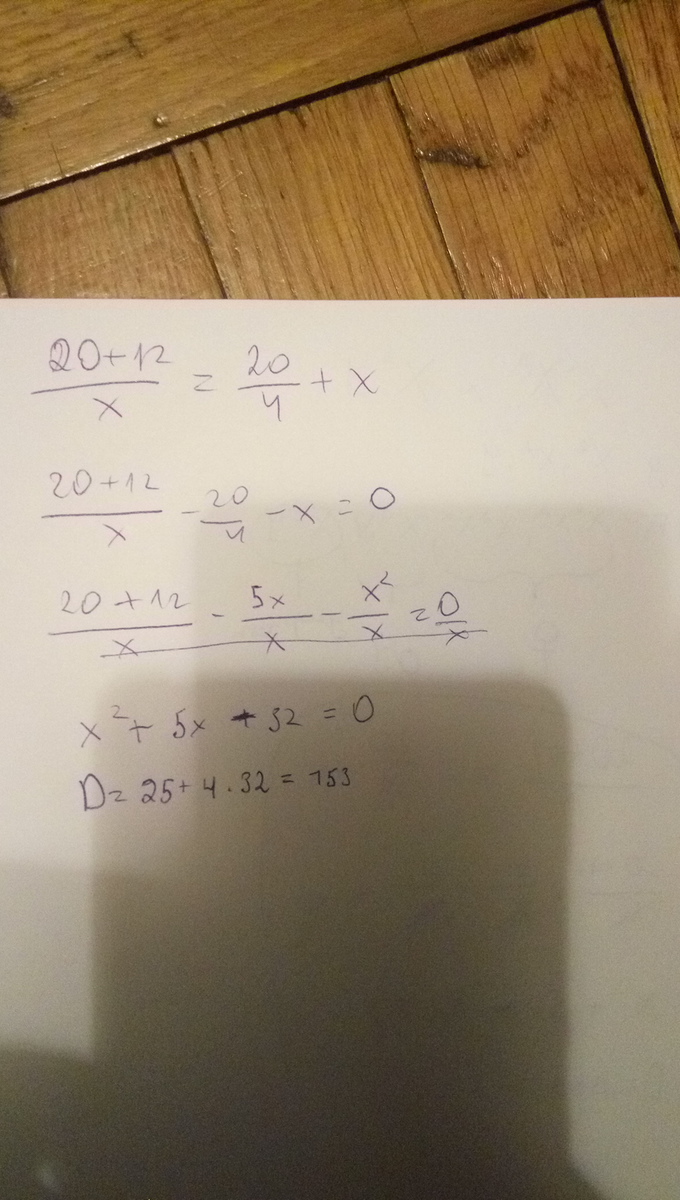 20+12/x = 20/4 + x
20+12/x - 20/4 - x = 0
20+12/x - 5x/x - x²/x = 0/x
x² + 5x - 32 = 0
D = 25 + 4 · 32 = 153